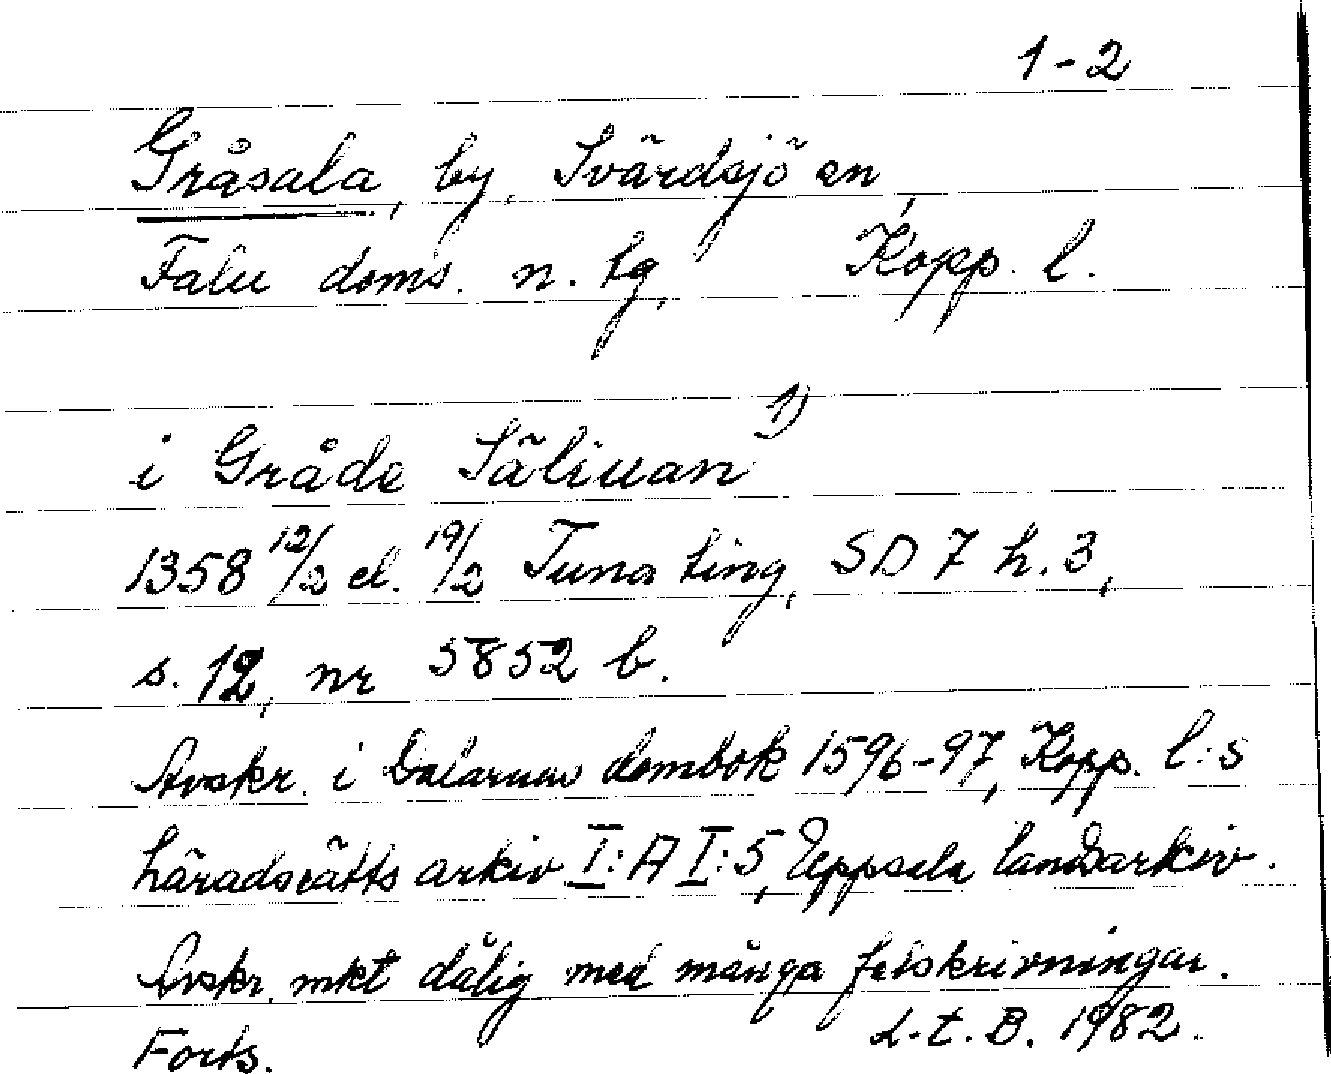 1-2
Gråsala, by, Svärdsjö sn,
Falu doms. n. tg, Kopp. l.
i Gråde Säliuan 1)
1358 12/2 el. 19/2 Tuna ting, SD 7 h. 3,
s. 12, nr 5852 b.
Avskr. i Dalarnas dombok 1596-97, Kopp. l:s
häradsrätts arkiv I: A I: 5, Uppsala landsarkiv.
Avskr. mkt dålig med många felskrivningar.
Forts. L.t.B. 1982.